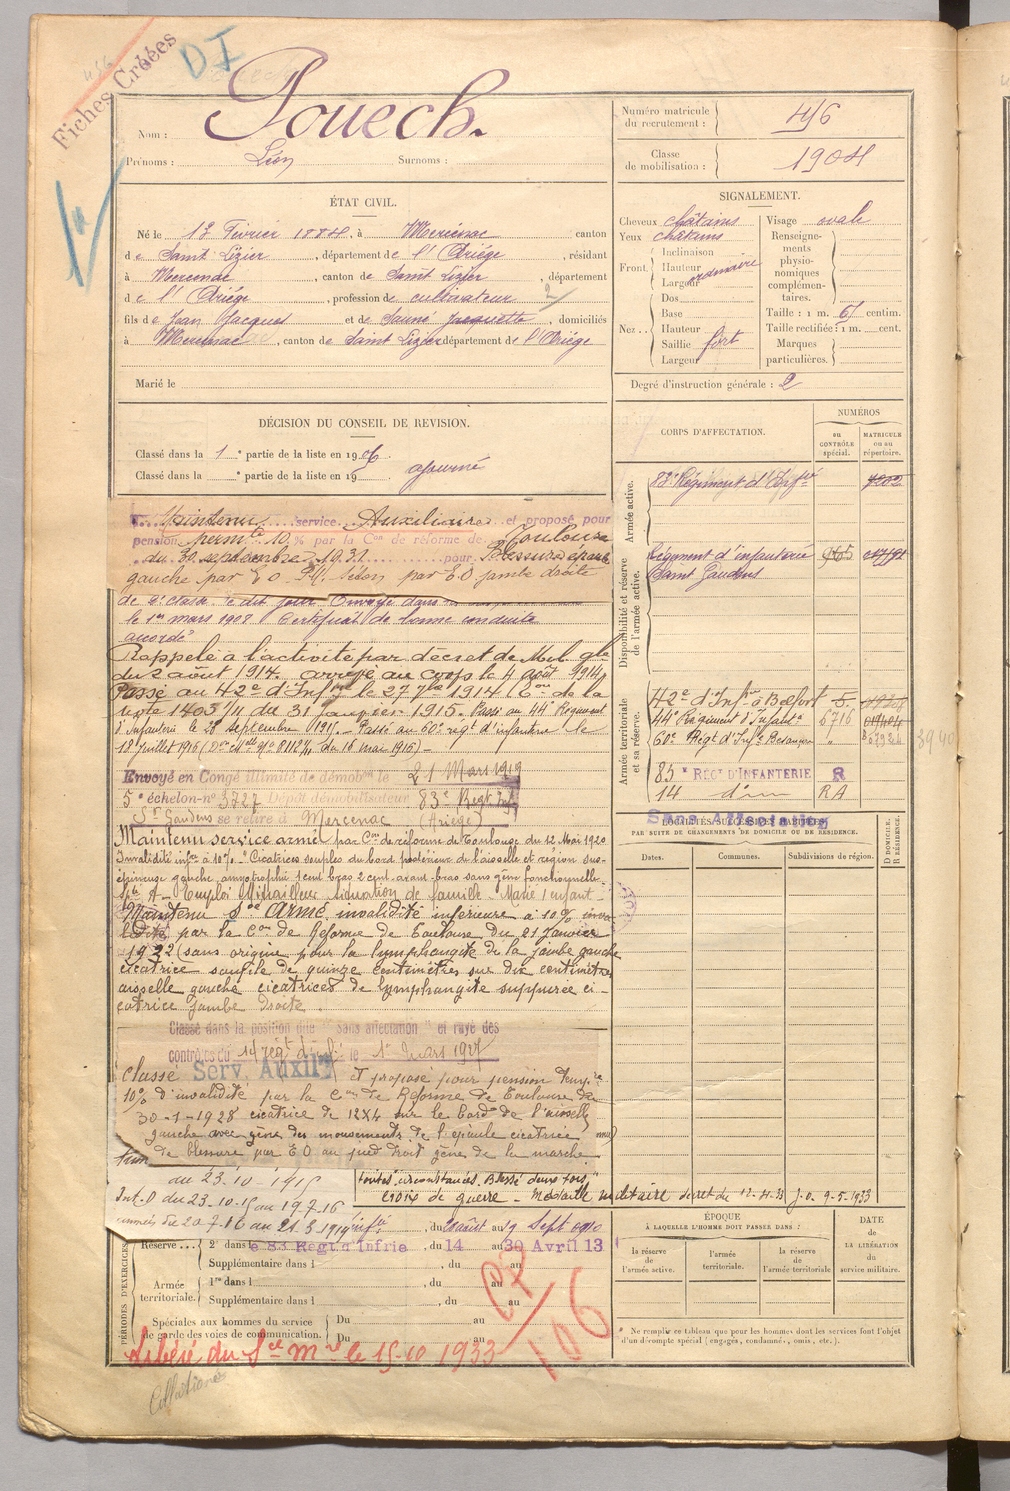 Fiches Créées
DI
Nom : Pouech.
Prénoms : Léon Surnoms :
ÉTAT CIVIL.
Né le 12 Février 1884, à Mercenac canton
de Saint Lizier, département de l'Ariège, résidant
à Mercenac, canton de Saint Lizier, département
de l'Ariège, profession de cultivateur
fils de Jean Jacques et de Sauné Jacquette, domiciliés
à Mercenac, canton de Saint Lizier département de l'Ariège
Marié le
DÉCISION DU CONSEIL DE REVISION.
Classé dans la 1e partie de la liste en 1906.
Classé dans la e partie de la liste en 19 ajourné
Maintenu service Auxiliaire et proposé pour
pension permte 10 % par la Con de réforme de Toulouse
du 30 septembre 1931 pour Blessure épaule
gauche par E O. Séton par E O jambe droite
de 2e classe le dit jour Envoyé dans
le 1er mars 1908 Certificat de bonne conduite
accordé
Rappelé à l'activité par décret de Mob. gle
du 2 août 1914. arrivé au corps le 4 août 1914
Passé au 42e d'Infie le 27 7bre 1914 Con de la
note 1403/11 du 31 janvier 1915. Passé au 44e Régiment
d'Infanterie le 28 septembre 1915. Passé au 60e régt d'infanterie le
12 juillet 1916 (Don elle No 8112/11 du 16 mai 1915)
Envoyé en Congé illimité de démobon le 21 Mars 1919
5e échelon-no 3727 Dépôt démobilisateur 83e Régt Infie
St Gaudens se retire à Mercenac (Ariège)
Maintenu service armé par Con de réforme de Toulouse du 12 Mai 1920
Invalidité infre à 10%. "Cicatrices souples du bord postérieur de l'aisselle et région sus-
épineuse gauche, amyotrophie 1 cent. bras 2 cent. avant-bras sans gêne fonctionnelle
Spté A - Emploi Mitrailleur Situation de famille - Marié 1 enfant
Maintenu Sce Armé, invalidité inférieure à 10% inva
lidité par la Con de Réforme de Toulouse du 21 Janvier
1922 (sans origine) pour la lymphangite de la jambe gauche
cicatrice souple de quinze centimètres sur dix centimètres
aisselle gauche cicatrices de lymphangite suppurée ci-
catrice jambe droite.
Classé dans la position dite "sans affectation" et rayé des
contrôles du 14 régt d'inf. le 1er mars 1927
Classé Serv. Auxilre et proposé pour pension tempre
10% d'invalidité par la Con de Réforme de Toulouse du
30-1-1928 cicatrice de 12X4 sur le bord de l'aisselle
gauche avec gêne des mouvements de l'épaule cicatrice
de blessure par E O au pied droit gêne de la marche
au 23-10-1915
Int. D du 23.10.15 au 19.7.16
armées du 20.7.16 au 21.3.1919
toutes circonstances. Blessé deux fois"
croix de guerre - Médaille militaire décret du 12-4-33 J.O. 9-5-1933
du août au 19 Sept 1910
Réserve... 2e dans le 83 Régt d'Infrie, du 14 au 30 Avril 13
Supplémentaire dans l , du au
Armée territoriale. 1re dans l , du au
Supplémentaire dans l , du au
Spéciales aux hommes du service de garde des voies de communication. Du au
Du au
PÉRIODES D'EXERCICES
Libéré du Sce Mre le 15-10 1933
Collationné
106
Numéro matricule du recrutement : 456
Classe de mobilisation : 1904
SIGNALEMENT.
Cheveux châtains
Yeux châtains
Front. Inclinaison
Hauteur ordinaire
Largeur
Nez. Dos
Base
Hauteur
Saillie fort
Largeur
Visage ovale
Renseignements physionomiques complémentaires.
Taille : 1 m. 61 centim.
Taille rectifiée : 1 m. cent.
Marques particulières.
Degré d'instruction générale : 2
CORPS D'AFFECTATION.
NUMÉROS
au CONTRÔLE spécial.
MATRICULE ou au répertoire.
Armée active.
83e Régiment d'Infie 7202
Disponibilité et réserve de l'armée active.
Régiment d'infanterie
Saint Gaudens
Armée territoriale et sa réserve.
42e d'Infie à Belfort
44e Régiment d'Infante 6716
60e Régt d'Infie Besançon
85e RÉGT D'INFANTERIE R
14 d'inf RA
Sans Affectation
LOCALITÉS SUCCESSIVES HABITÉES
PAR SUITE DE CHANGEMENTS DE DOMICILE OU DE RÉSIDENCE.
Dates.
Communes.
Subdivisions de région.
D DOMICILE.
R RÉSIDENCE.
ÉPOQUE
À LAQUELLE L'HOMME DOIT PASSER DANS :
la réserve de l'armée active.
l'armée territoriale.
la réserve de l'armée territoriale
DATE de LA LIBÉRATION du service militaire.
* Ne remplir ce tableau que pour les hommes dont les services font l'objet
d'un décompte spécial (engagés, condamnés, omis, etc.).